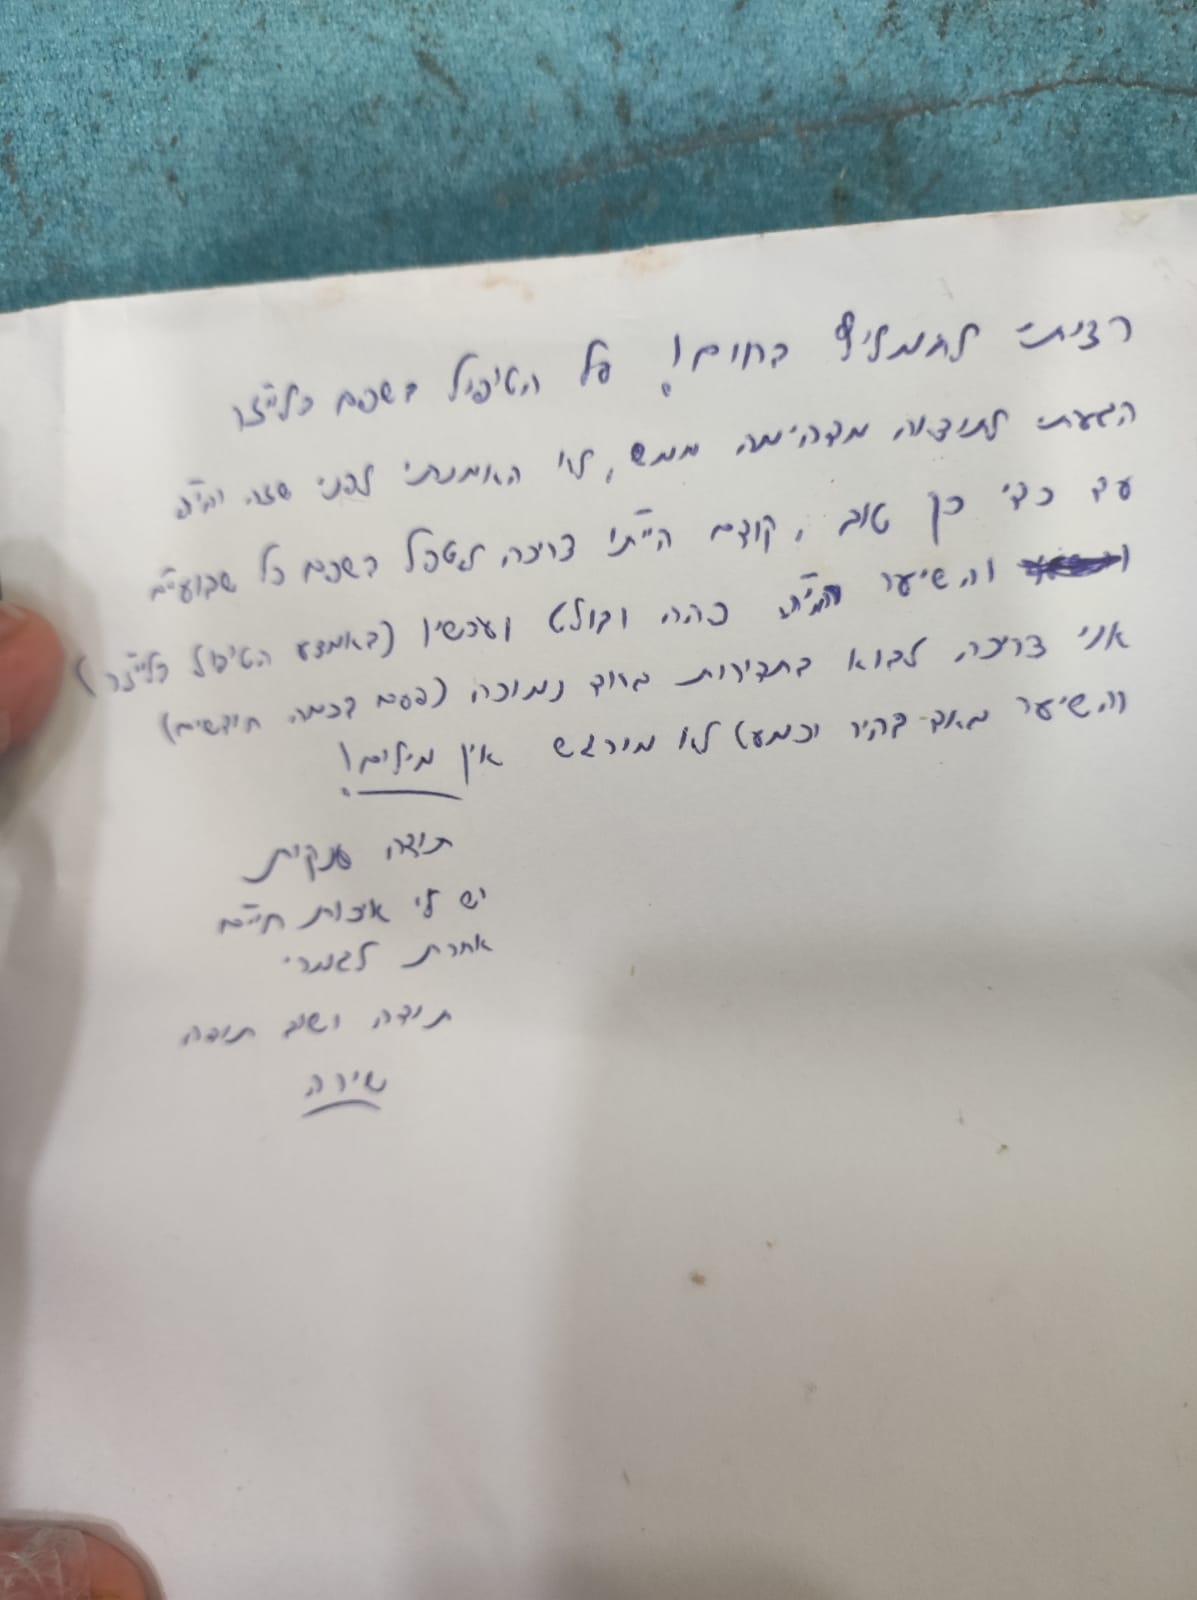 רציתי להמליץ בחום! על הטיפול בשפם בלייזר
הגעתי לתוצאה מדהימה ממש, לא האמנתי לפני שזה יהיה
עד כדי כך טוב, קודם הייתי צריכה לטפל בשפם כל שבועיים
והשיער היה כהה ובולט ועכשיו (באמצע הטיפול בלייזר)
אני צריכה לבוא בתדירות נמוכה (פעם בכמה חודשים)
והשיער מאוד בהיר וכמעט לא מורגש אין מילים!
תודה ענקית
יש לי איכות חיים
אחרת לגמרי
תודה ושוב תודה
שירה